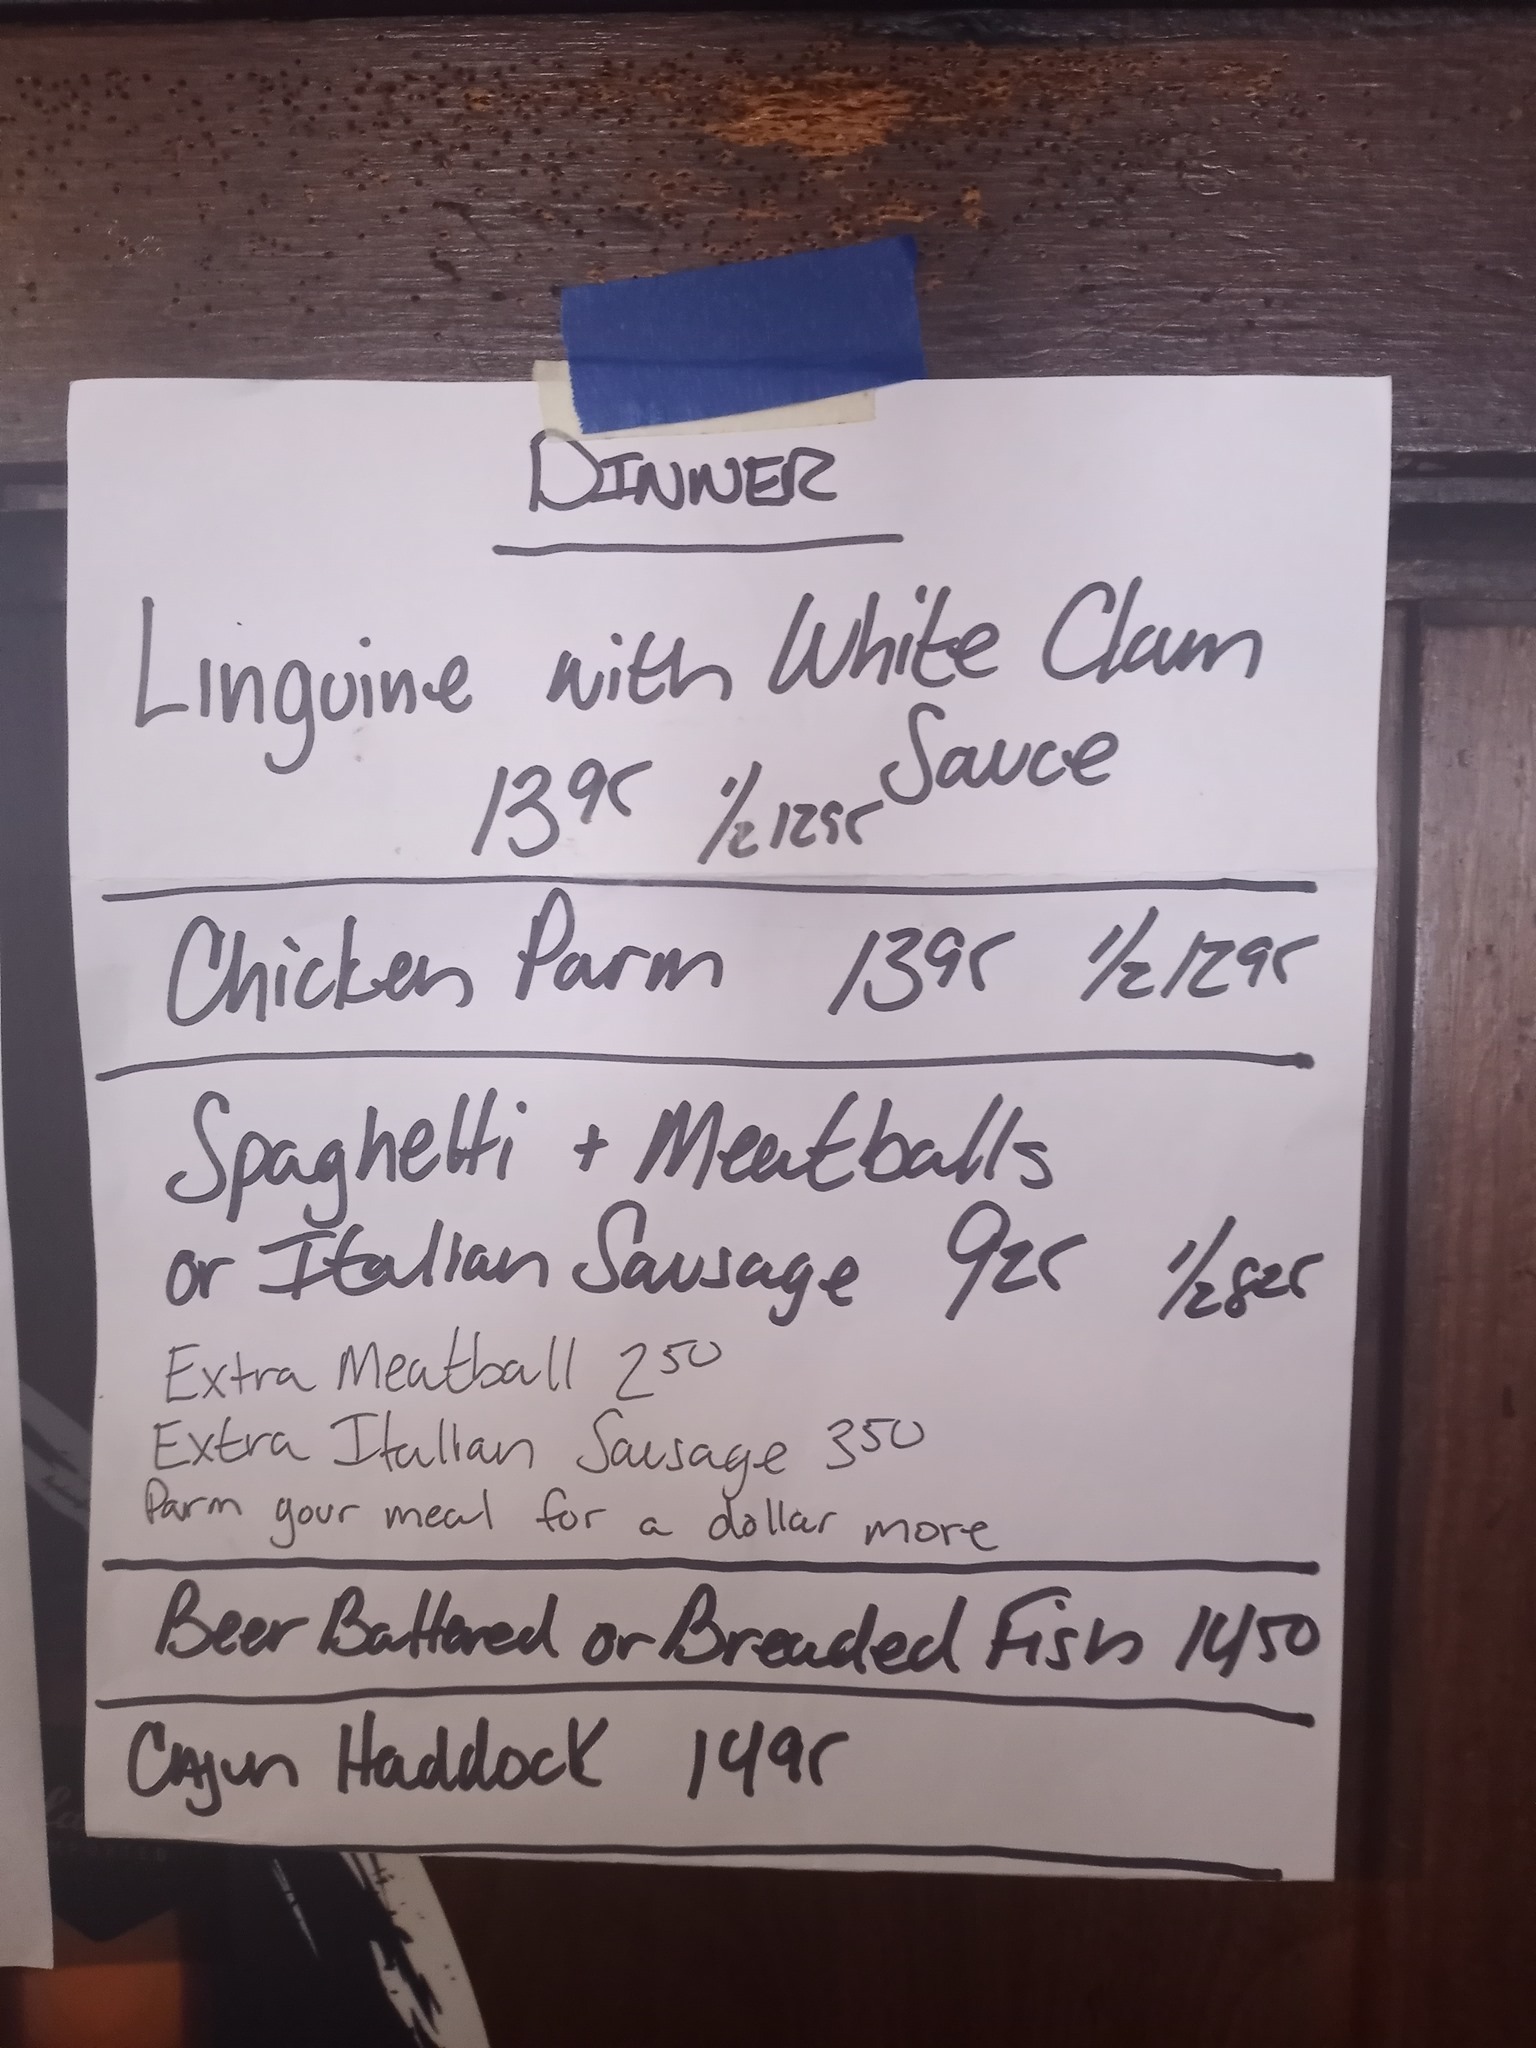 DINNER
Linguine with White Clam
Sauce
13 95 1/2 12 95
Chicken Parm 13 95 1/2 12 95
Spaghetti + Meatballs
or Italian Sausage 9 25 1/2 8 25
Extra Meatball 2 50
Extra Italian Sausage 3 50
Parm your meal for a dollar more
Beer Battered or Breaded Fish 14 50
Cajun Haddock 14 95